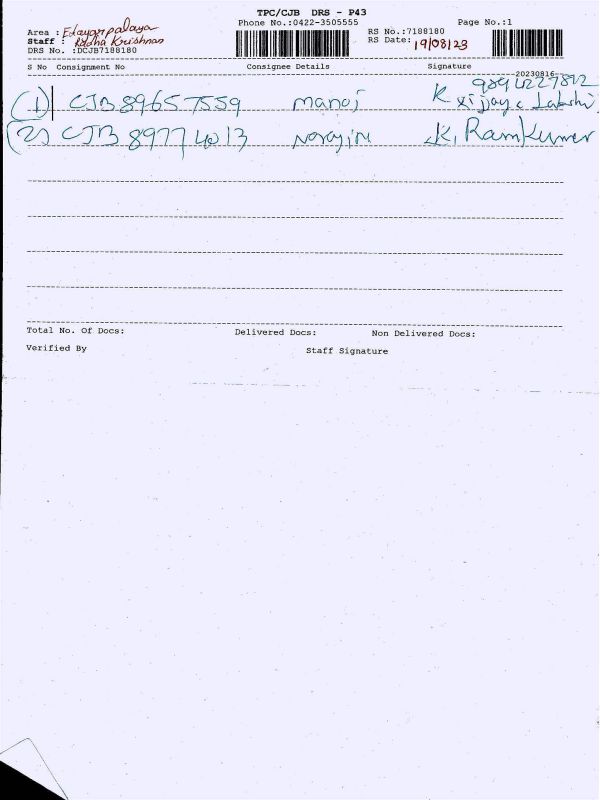 TPC/CJB DRS - P43
Phone No.:0422-3505555 Page No.:1
Area : Edayarpalaya RS No.:7188180
Staff : Radha Krishnan RS Date: 19/08/23
DRS No. :DCJB7188180
S No Consignment No Consignee Details Signature
20230816
9894227822
(1) CJB 89657559 manoj K
(2) CJB 89774013 K. RamKumar
Total No. Of Docs: Delivered Docs: Non Delivered Docs:
Verified By Staff Signature